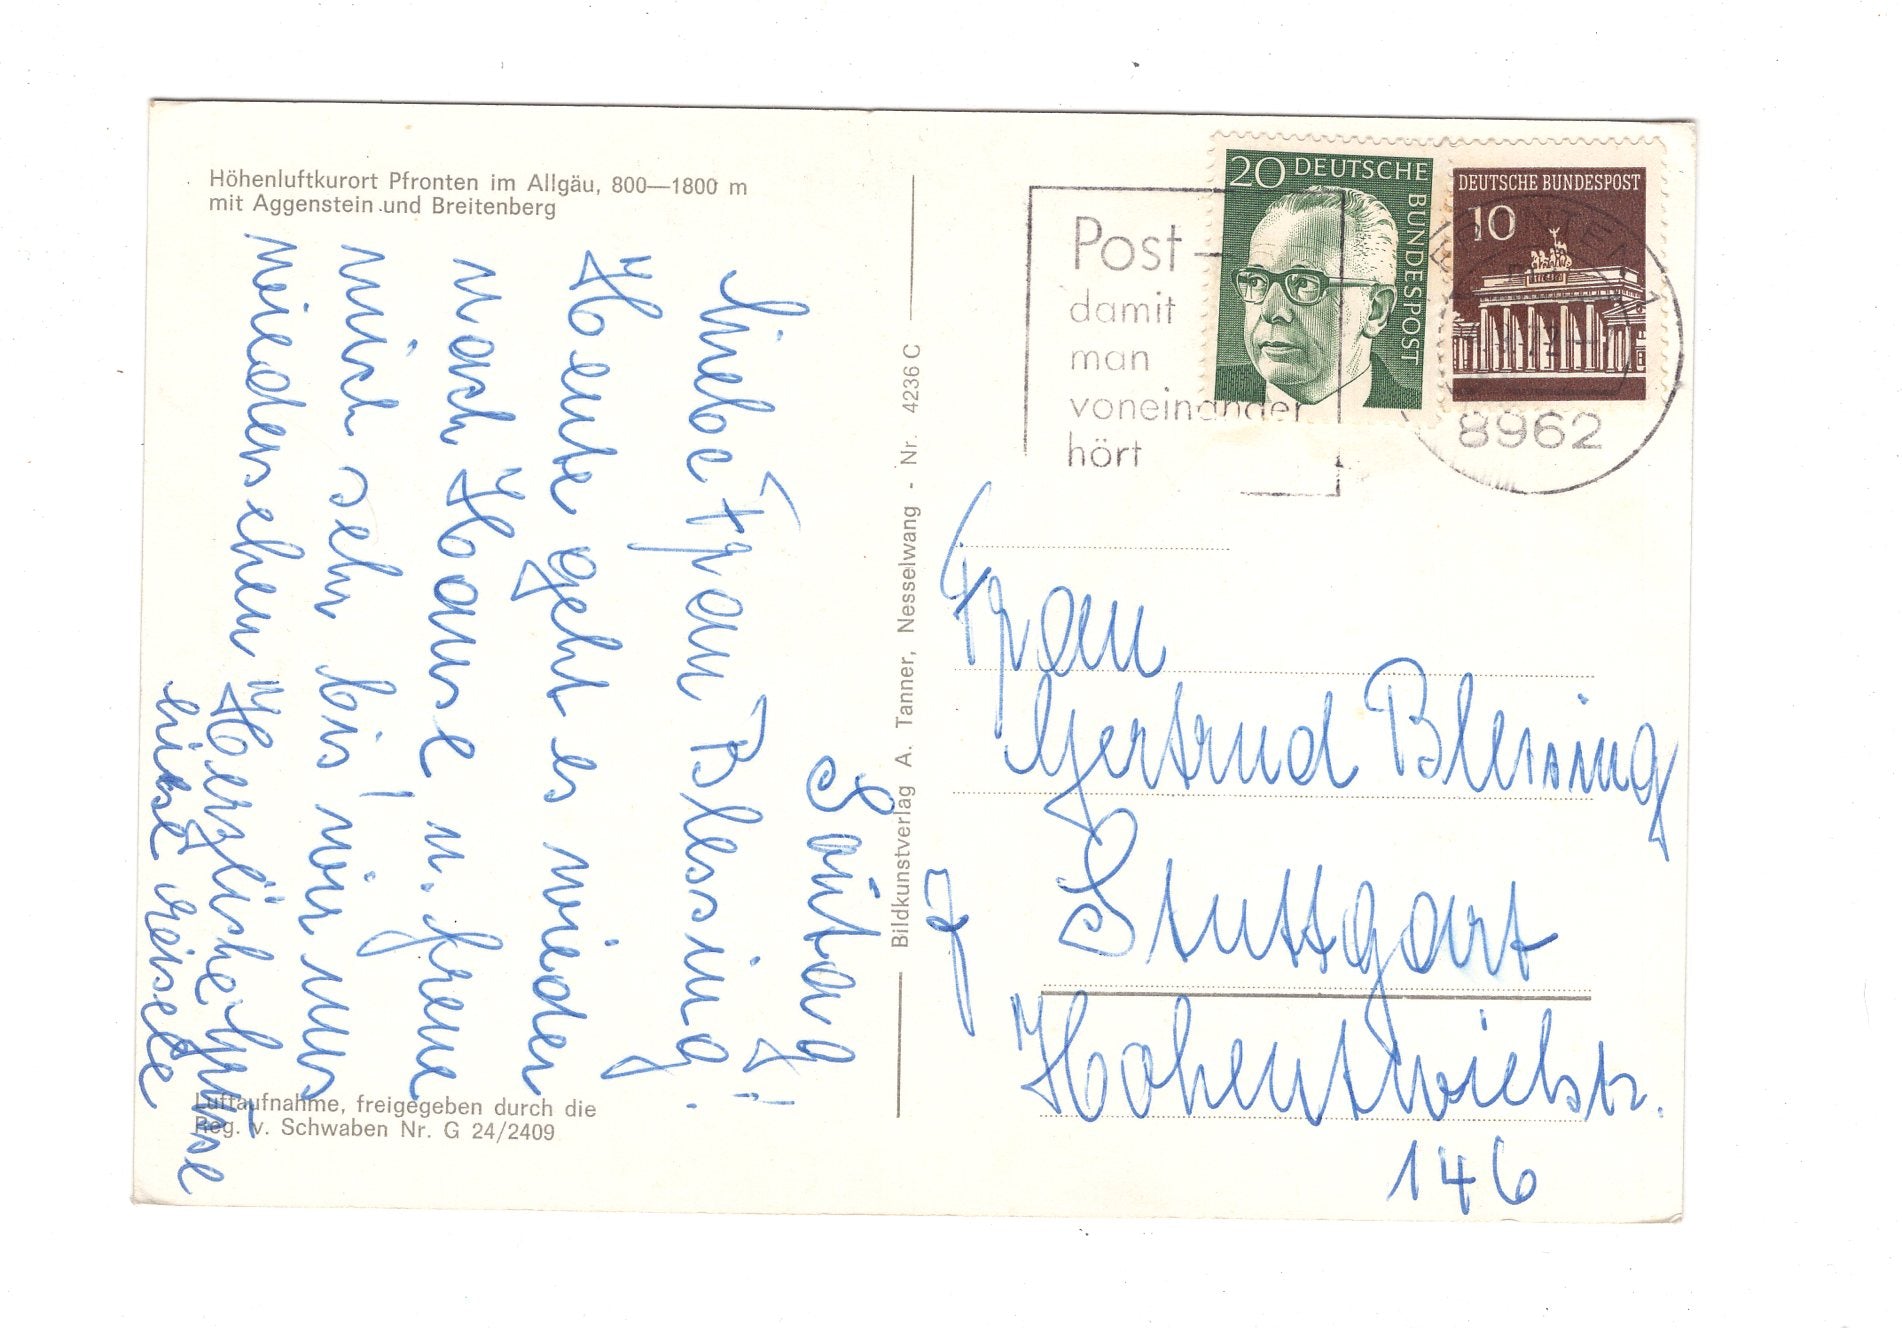 Höhenluftkurort Pfronten im Allgäu, 800—1800 m
mit Aggenstein und Breitenberg
Sontag
Liebe Frau Blessing!
Heute geht es wieder
nach Hause u. freue
mich sehr bis wir uns
wiedersehen Herzliche Grüsse
Luftaufnahme, freigegeben durch die
Reg. v. Schwaben Nr. G 24/2409
Bildkunstverlag A. Tanner, Nesselwang - Nr. 4236 C
Post-
damit
man
voneinander
hört
20 DEUTSCHE BUNDESPOST
DEUTSCHE BUNDESPOST
10
8962
Frau
Gertrud Blessing
7 Stuttgart
Hohentwielstr.
146